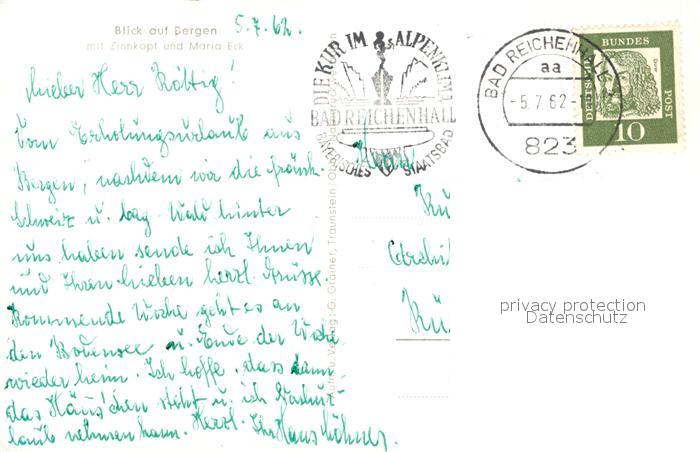 Blick auf Bergen
mit Zinnkopf und Maria Eck
5.7.62.
Lieber Herr Röttig!
Vom Erholungsurlaub aus
Bergen, nachdem wir die fränk.
Schweiz u. bay. Wald hinter
uns haben sende ich Ihnen
und Ihren Lieben herzl. Grüsse.
Kommende Woche geht es an
den Bodensee u. Ende der Woche
wieder heim. Ich hoffe, dass dann
das Häuschen steht u. ich
nehmen kann. Herzl. Ihr Hans
Verlag: G. Grainer, Traunstein
DIE KUR IM ALPENKLIMA
BAD REICHENHALL
BAYERISCHES STAATSBAD
BAD REICHENHALL
aa
-5.7.62-
823
DEUTSCHE BUNDESPOST
10
Herrn
Kü
Archi
Kü
privacy protection
Datenschutz